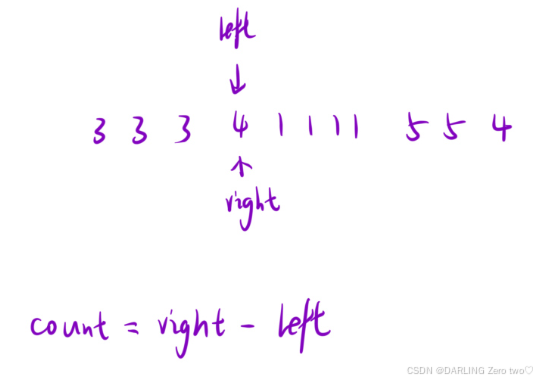 left
3 3 3 4 1 1 1 1 5 5 4
right
count = right - left
CSDN @DARLING Zero two♡